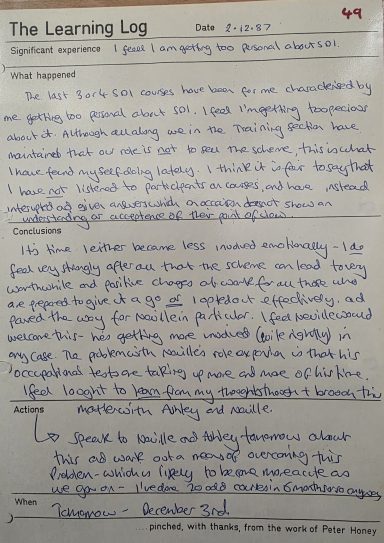 49
The Learning Log Date 2.12.87
Significant experience I feel I am getting too personal about SDI.
What happened
The last 3 or 4 SDI courses have been for me characterised by
me getting too personal about SDI. I feel I'm getting too precious
about it. Although all along we in the Training section have
maintained that our role is not to sell the scheme, this is what
I have found myself doing lately. I think it is fair to say that
I have not listened to participants on courses, and have instead
interrupted and given answers which on occasion does not show an
understanding or acceptance of their point of view.
Conclusions
It's time I either became less involved emotionally - I do
feel very strongly after all that the scheme can lead to very
worthwhile and positive changes at work for all those who
are prepared to give it a go or I opted out effectively. and
paved the way for Neville in particular. I feel Neville would
welcome this - he's getting more involved (quite rightly) in
any case. The problem with Neville's role expansion is that his
occupational tests are taking up more and more of his time.
I feel I ought to learn from my thoughts though & broach this
matter with Ashley and Neville.
Actions
Speak to Neville and Ashley tomorrow about
this and work out a means of overcoming this
Problem - which is likely to become more acute as
we go on - I've done 20 odd courses in 6 months or so anyway
When
Tomorrow - December 3rd.
....pinched, with thanks, from the work of Peter Honey